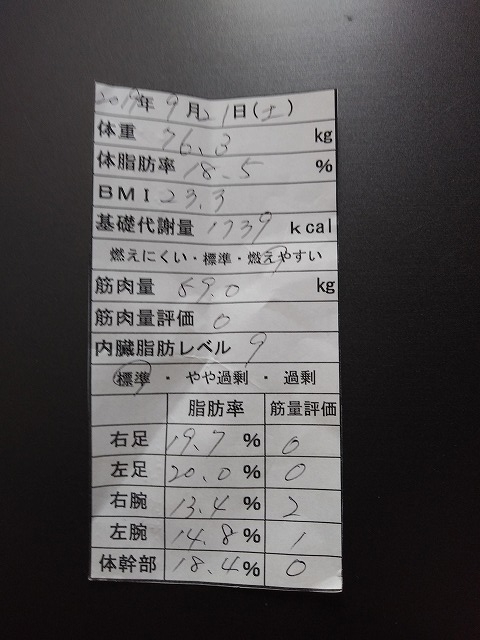 2019年9月21日(土)
体重 76.3 kg
体脂肪率 18.5 %
BMI 23.3
基礎代謝量 1739 kcal
燃えにくい・標準・燃えやすい
筋肉量 59.0 kg
筋肉量評価 0
内臓脂肪レベル 9
標準 ・ やや過剰 ・ 過剰
脂肪率 筋量評価
右足 19.7 % 0
左足 20.0 % 0
右腕 13.4 % 2
左腕 14.8 % 1
体幹部 18.4 % 0